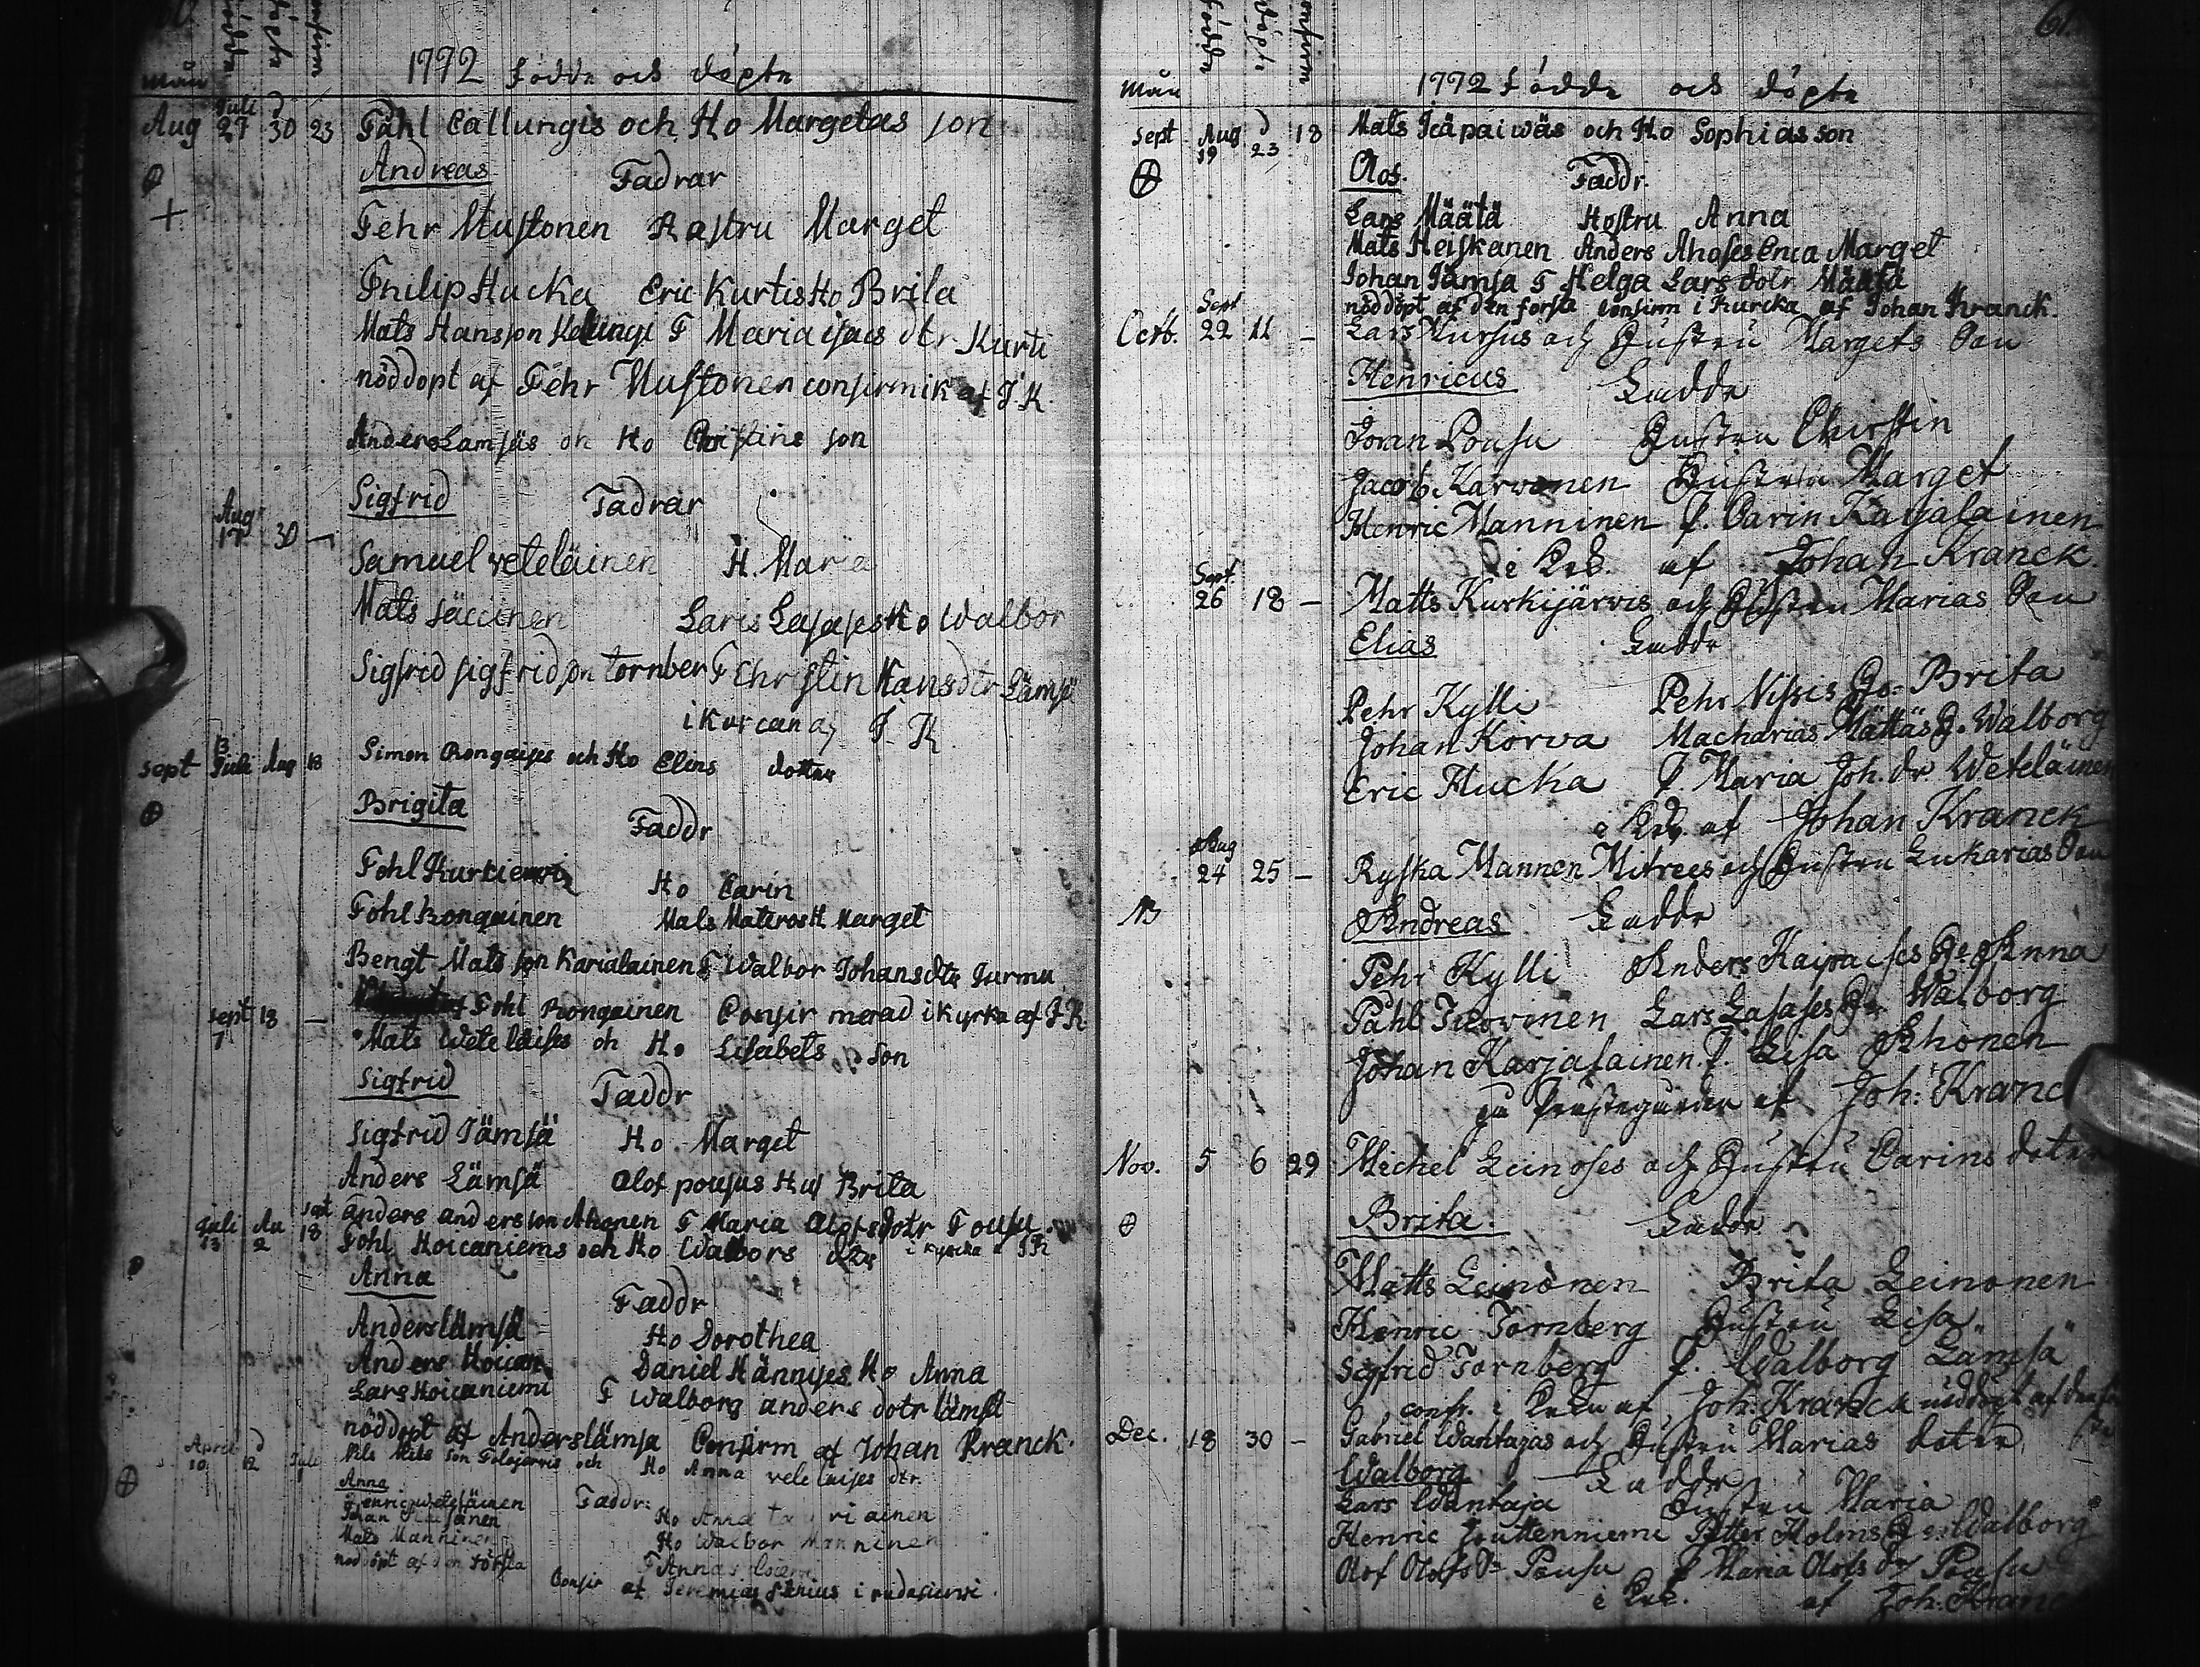 60
födde döpte confirm
Mån 1772 födde och döpte
Aug Juli 27 d 30 23 Påhl Callungis och Ho Margetas son
Andreas Fadrar
Pehr Mustonen Hustru Marget
Philip Hucka Eric Kurtis Ho Brita
Mats Hansson Kallungi P Maria isacs dtr Kurti
nöddopt af Pehr Mustonen confirm i k af J K
Anders Lamsäs oh Ho Christins son
Aug 17 30 – Sigfrid Fadrar
Samuel veteläinen H. Maria
Mats säccinen Lars Lasases Ho Walbor
Sigfrid sigfridson tornber P Christin Hansdtr Lämsä
i Kurcan af J. K
sept 13 Juli Aug 18 Simon Rongaises och Ho Elins dotter
Brigita Faddr
Pohl Kurkierwi Ho Carin
Pohl Rongainen Mats Materos H Marget
Bengt Matsson Karialainen P Walbor Johansdtr Jurmu
Pohl Rongainen Confirmerad i Kyrka af J K
sept 7 18 – Mats Wetelaises oh Ho Lisabets son
Sigfrid Faddr
Sigfrid Jämsä Ho Marget
Anders Lämsä Olof pousus Hus Brita
anders andersson Ahonen P Maria Olofsdotr Pousu
Juli 13 Au 2 sept 18 Pohl Hoicaniems och Ho Walbors dtr i kyrcka J K
Anna Faddr
Anders lämsä Ho Dorothea
Anders Hoican Daniel Hännises Ho Anna
Lars Hoicaniemi P Walborg anders dotr lämsä
nöddopt af Anders lämsä Confirm af Johan Kranck.
April 10 d 12 Juli Nils Nils son Polojärvis och Ho Anna vetelaises dtr.
Anna Faddr:
Henric weteläinen Ho Anna riainen
Johan Ho Walbor Manninen
Mats Manninen P Anna
noddöpt af den första
Confir af Jeremias

61.
födde döpte confirm
Mån 1772 födde och döpte
Sept Aug 19 d 23 18 Mats Icäpaiwäs och Ho Sophias son
Olof. Faddr.
Lars Määtä Hustru Anna
Mats Heiskanen Anders Ahoses Enca Marget
Johan Jämsa P Helga Lars dotr Määtä
nöddöpt af den första confirm i kurcka af Johan Kranck.
Octb. Sept 22 11 – Lars Kursus och Hustru Margets Son
Henricus Faddr
Joran Pousu Hustru Christin
Jacob Karvonen Hustru Marget
Henric Manninen P. Carin Karjalainen
i Krk. af Johan Kranck.
Sept. 26 18 – Matts Kurkijärvis och Hustru Marias Son
Elias Faddr
Pehr Kylli Pehr Nissis Ho. Brita
Johan Korva Macharias Mättäs H. Walborg
Eric Hucka P. Maria Joh. dr Weteläinen
i Krk. af Johan Kranck
Aug 24 25 – Ryska Mannen Mitrees och Hustru Lukarias Son
NB Andreas Faddr
Pehr Kylli Anders Kaipaises Ho Anna
Påhl Turvinen Lars Lasases Ho Walborg
Johan Karjalainen P. Lisa Ahonen
på Prästegården af Joh: Kranc
Nov. 5 6 29 Michel Leinoses och Hustru Carins doter
Brita. Faddr
Matts Leinonen Brita Leinonen
Henric Tornberg Hustru Lisa
Sigfrid Tornberg P. Walborg Lämsä
conf. i Krkn af Joh: Kranck nöddopt af den
Dec. 18 30 – Gabriel Wantajas och Hustru Marias doter
Walborg Faddr
Lars Wantaja Hustru Maria
Henric Juttenniemi Petter Holms Hu Walborg
Olof Olofs Sn Pousu P Maria Olofs dr Pousu
i Krk. af Joh: Kranc